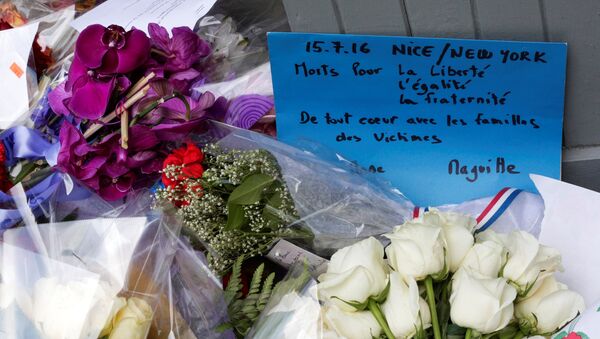 15.7.16 NICE/NEW YORK
Morts Pour La Liberté
L'égalité
La fraternité
De tout coeur avec les familles
des Victimes